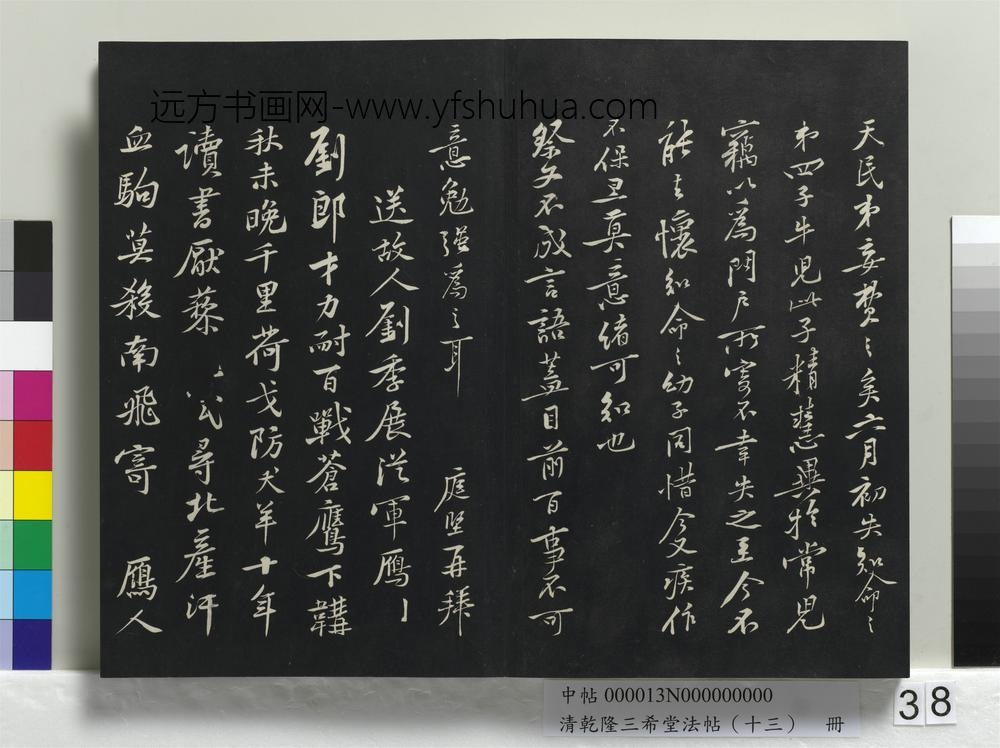 天民弟妄費〻矣六月初失知命〻
弟四子牛兒此子精慧異於常兒
竊以為門戶所寄不幸失之至今不
能去懷知命〻幼子同惜今又疾作
不保且真意緒可知也
祭文不成言語蓋目前百事不可
意勉強為之耳 庭堅再拜
送故人劉季展從軍雁
劉郎才力耐百戰蒼鷹下韝
秋未晚千里荷戈防犬羊十年
讀書厭藜 尋北產汗
血駒莫殺南飛寄 鴈人
远方书画网-www.yfshuhua.com
中帖 000013N000000000
清乾隆三希堂法帖（十三） 冊
38